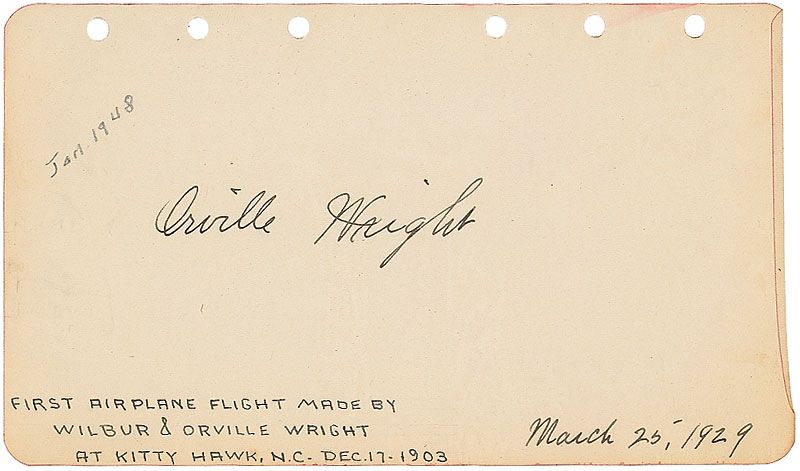 Jan. 1948
Orville Wright
FIRST AIRPLANE FLIGHT MADE BY
WILBUR & ORVILLE WRIGHT
AT KITTY HAWK, N.C. DEC. 17 - 1903
March 25, 1929